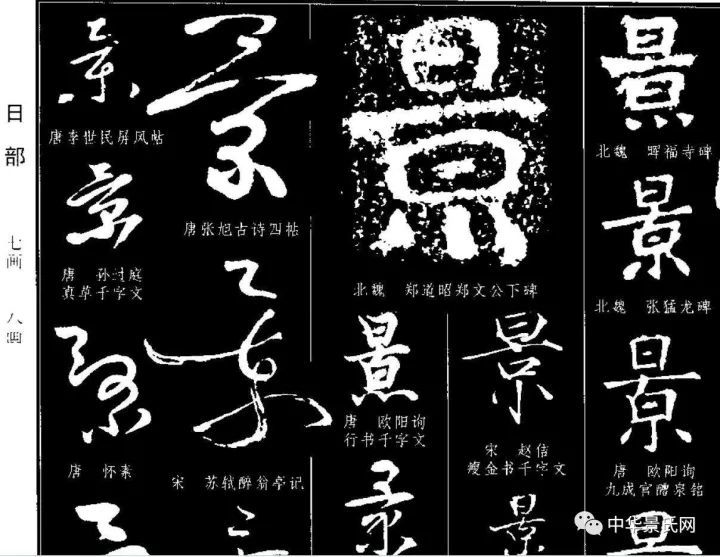 日部
七画 八画
景
唐李世民屏风帖
景
唐 孙过庭
真草千字文
景
唐 怀素
景
唐张旭古诗四帖
景
宋 苏轼醉翁亭记
景
北魏 郑道昭郑文公下碑
景
唐 欧阳询
行书千字文
景
宋 赵佶
瘦金书千字文
景
景
北魏 晖福寺碑
景
北魏 张猛龙碑
景
唐 欧阳询
九成宫醴泉铭
中华景氏网